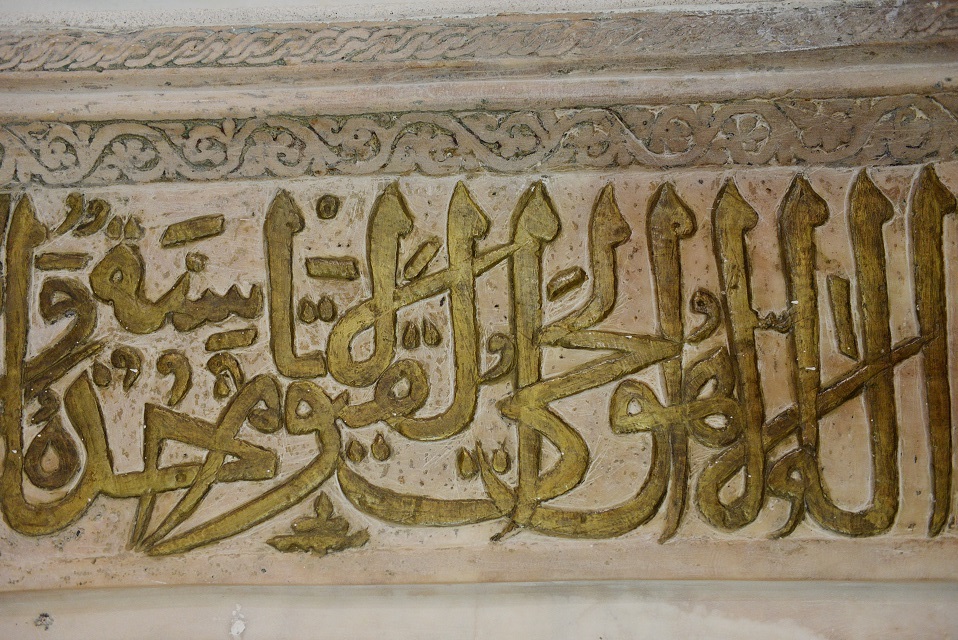 الله لا إله إلا هو الحي القيوم لا تأخذه سنة ولا